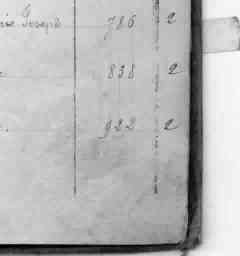 Joseph 786 2
838 2
922 2